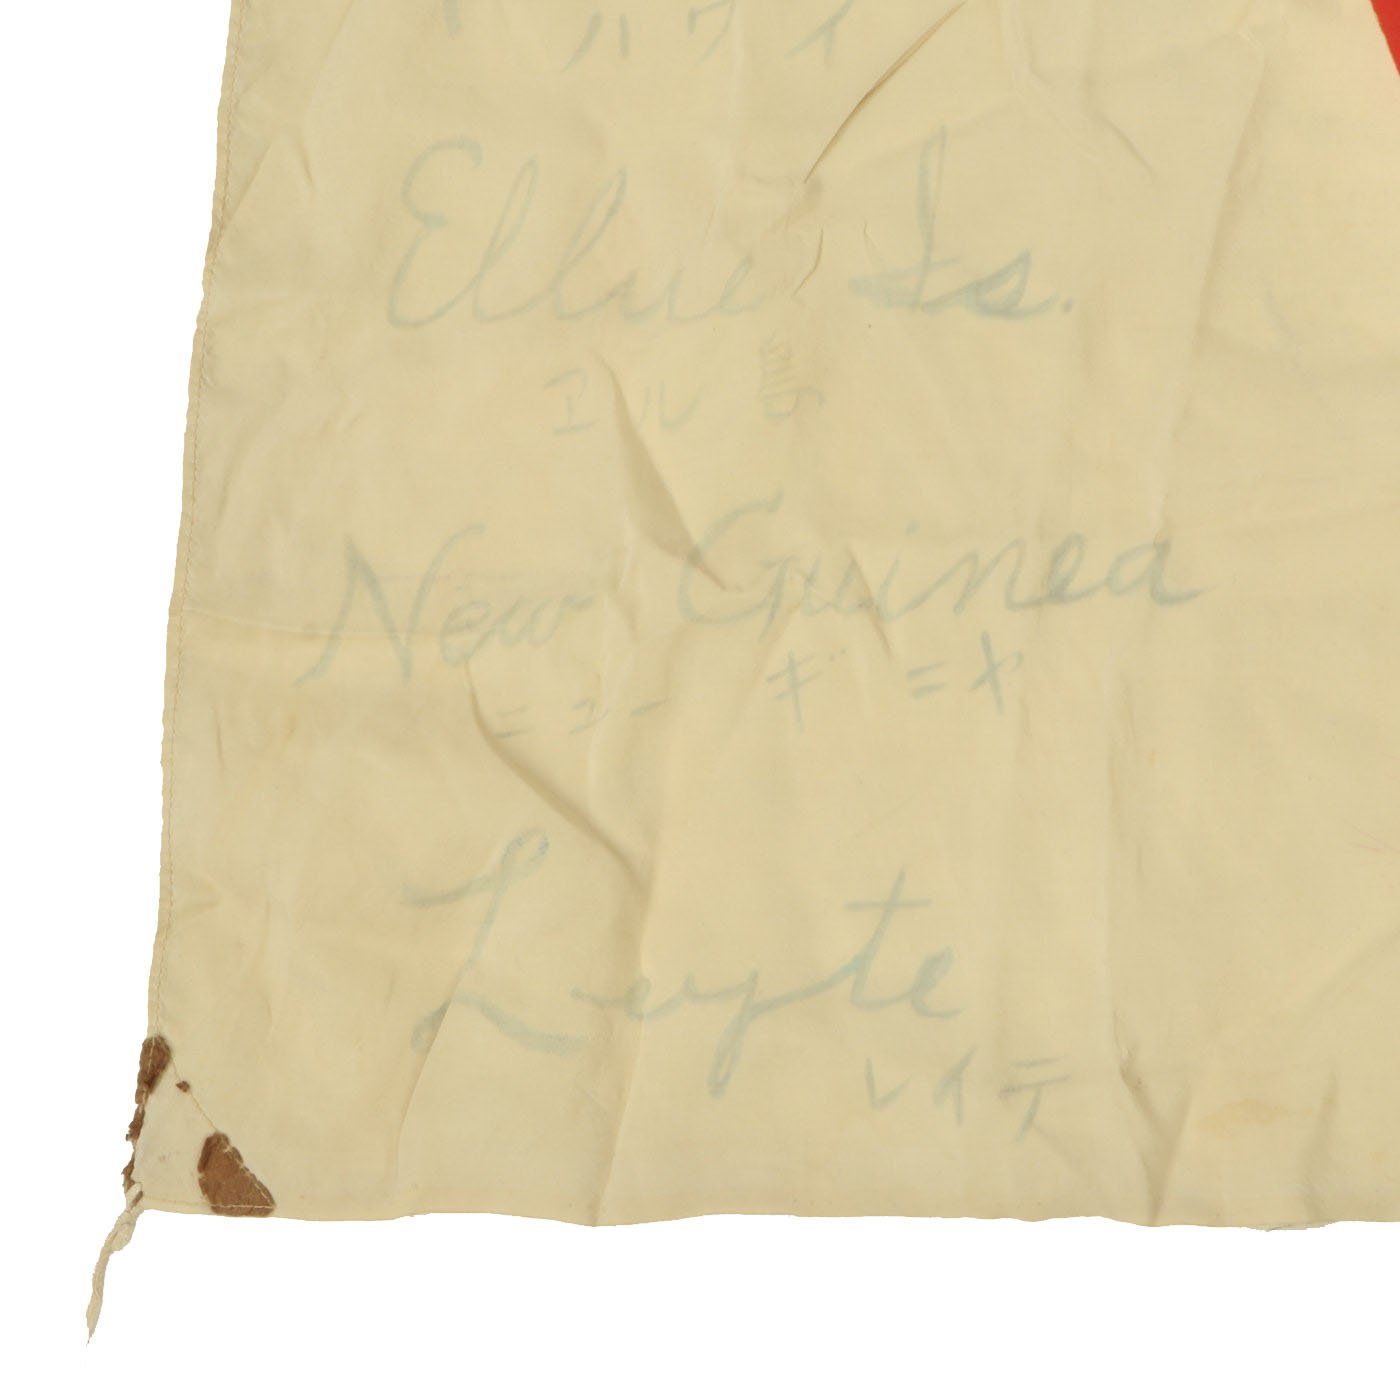 ハワイ
Ellue Is.
エル島
New Guinea
ニューギニヤ
Leyte
レイテ